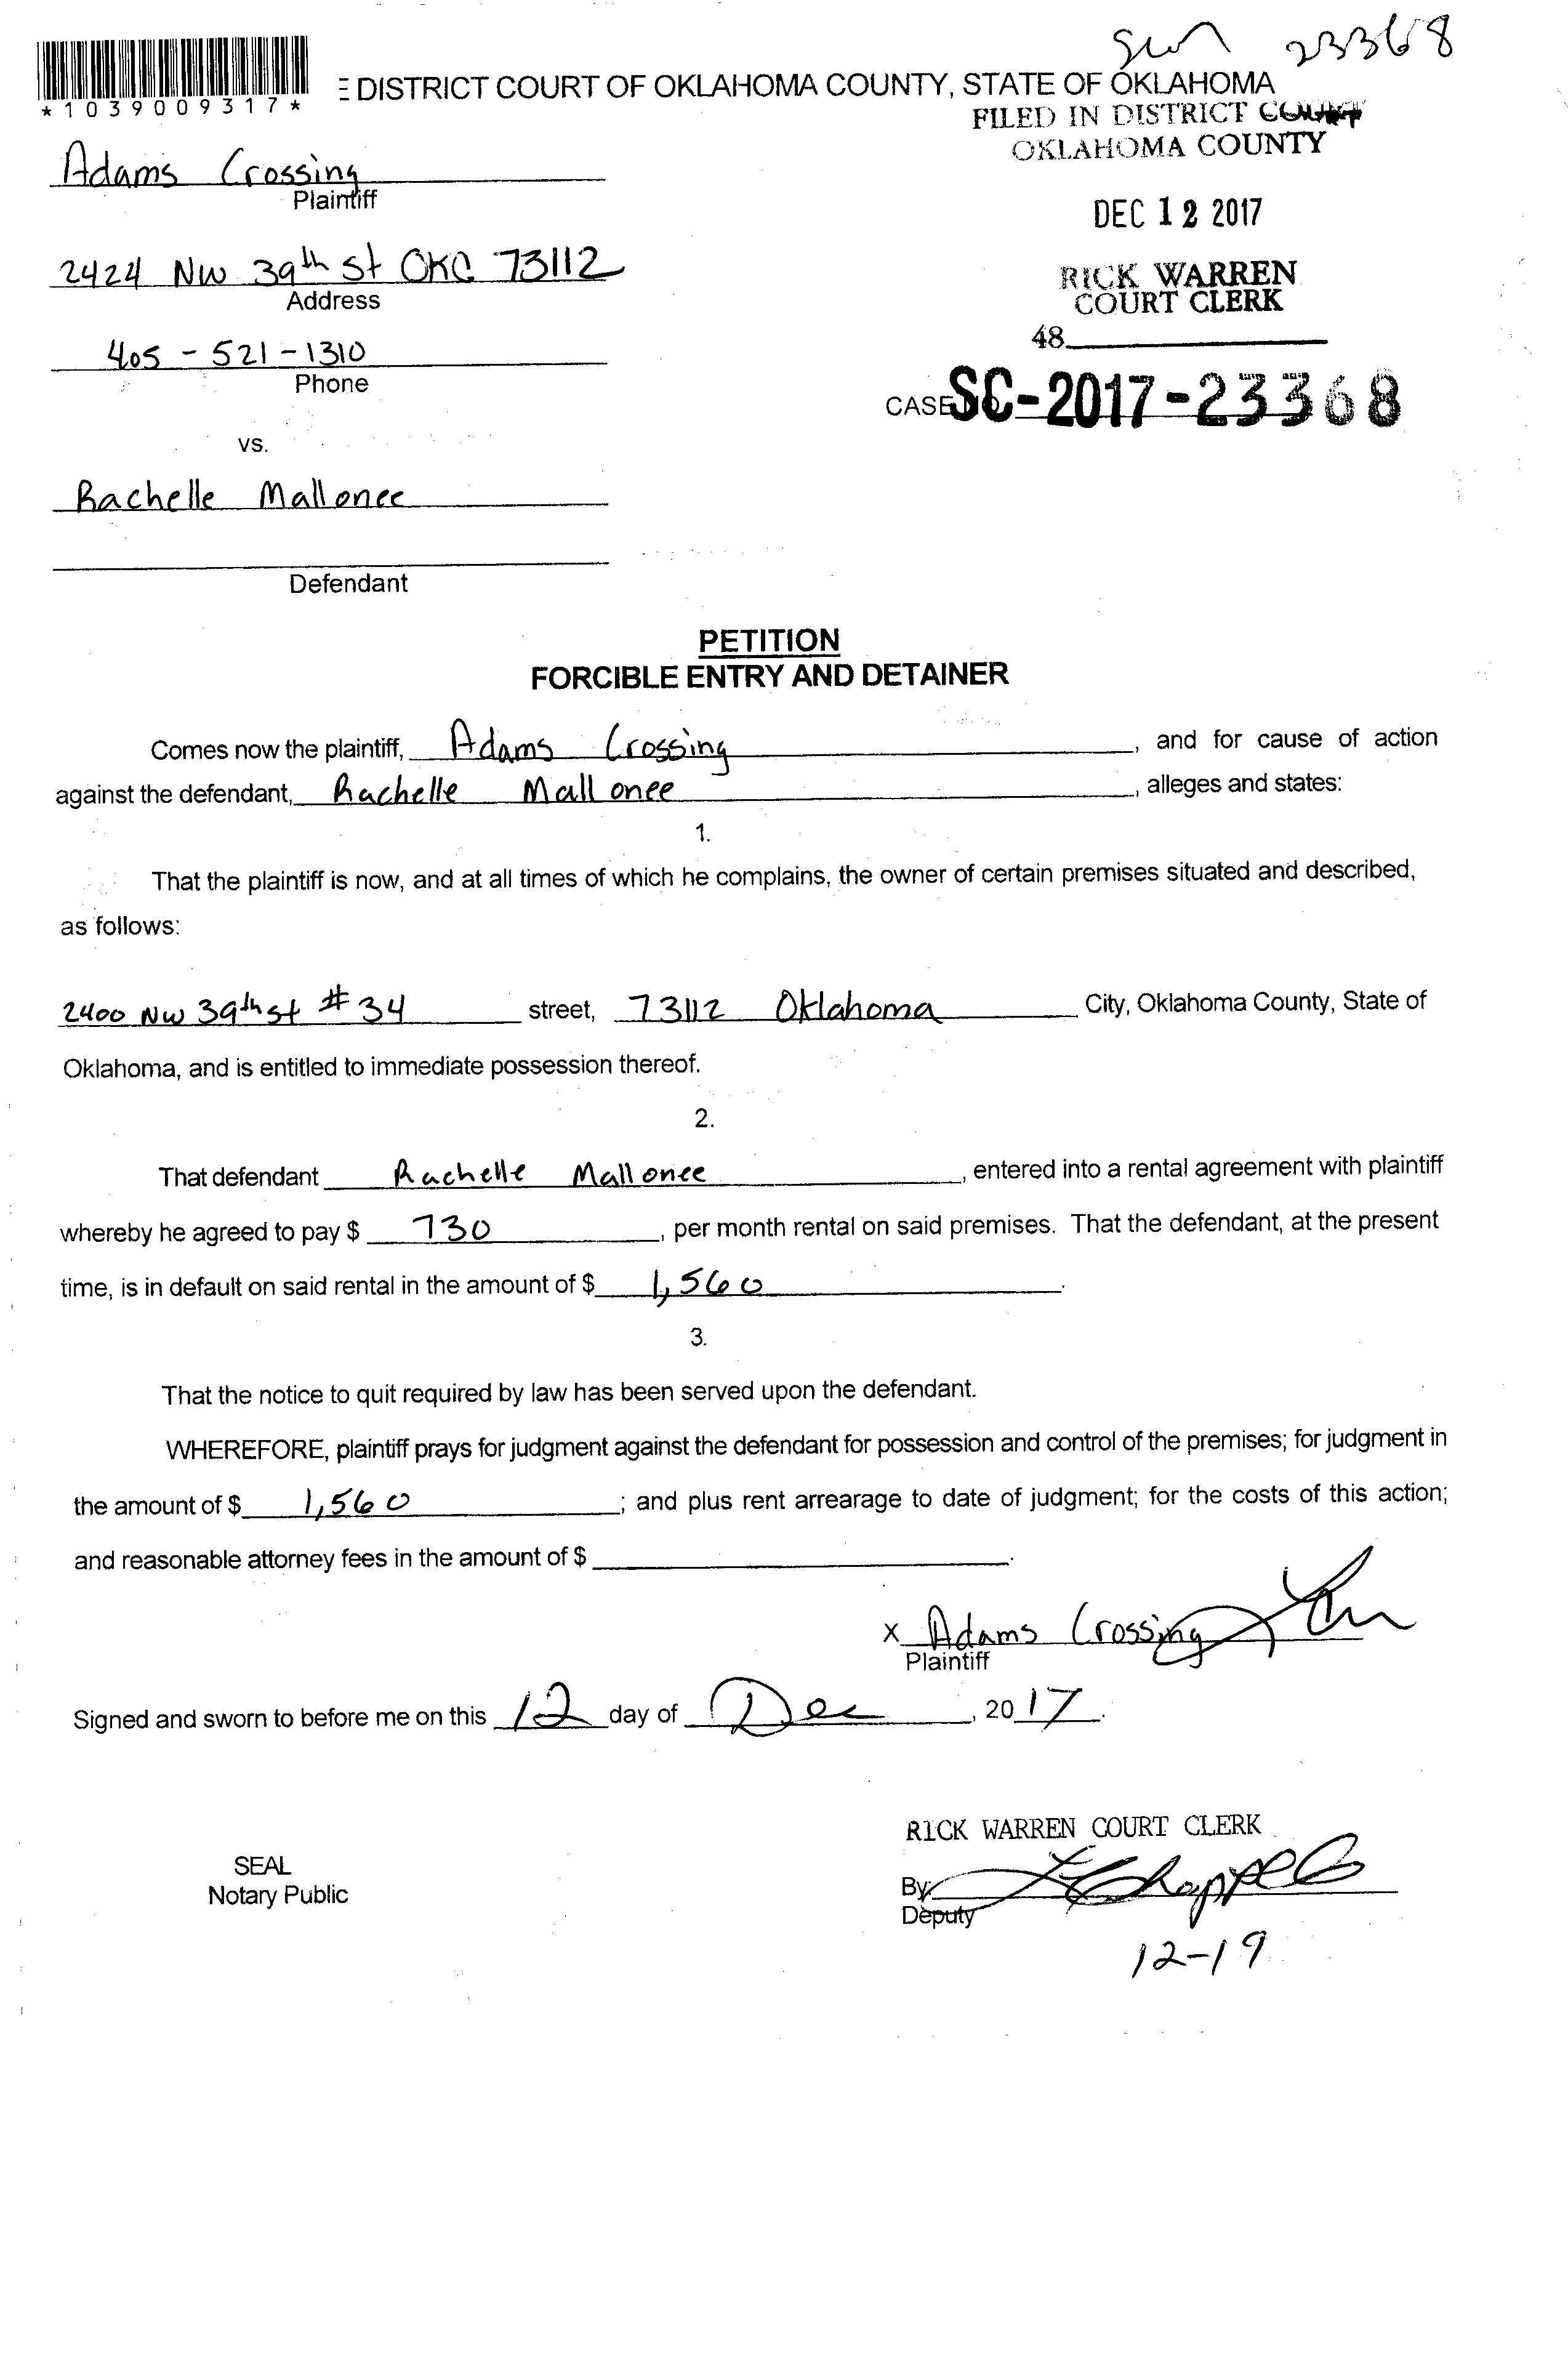 23368
*1039009317*
E DISTRICT COURT OF OKLAHOMA COUNTY, STATE OF OKLAHOMA
FILED IN DISTRICT COURT
OKLAHOMA COUNTY
Adams Crossing
Plaintiff
DEC 12 2017
2424 NW 39th St OKC 73112
Address
RICK WARREN
COURT CLERK
48
405 - 521 - 1310
Phone
CASE SC-2017-23368
vs.
Rachelle Mallonee
Defendant
PETITION
FORCIBLE ENTRY AND DETAINER
Comes now the plaintiff, Adams Crossing, and for cause of action
against the defendant, Rachelle Mallonee, alleges and states:
1.
That the plaintiff is now, and at all times of which he complains, the owner of certain premises situated and described,
as follows:
2400 NW 39th st #34 street, 73112 Oklahoma City, Oklahoma County, State of
Oklahoma, and is entitled to immediate possession thereof.
2.
That defendant Rachelle Mallonee, entered into a rental agreement with plaintiff
whereby he agreed to pay $ 730, per month rental on said premises. That the defendant, at the present
time, is in default on said rental in the amount of $ 1,560.
3.
That the notice to quit required by law has been served upon the defendant.
WHEREFORE, plaintiff prays for judgment against the defendant for possession and control of the premises; for judgment in
the amount of $ 1,560; and plus rent arrearage to date of judgment; for the costs of this action;
and reasonable attorney fees in the amount of $ .
X Adams Crossing
Plaintiff
Signed and sworn to before me on this 12 day of Dec, 2017.
RICK WARREN COURT CLERK
SEAL
Notary Public
By:
Deputy
12-19